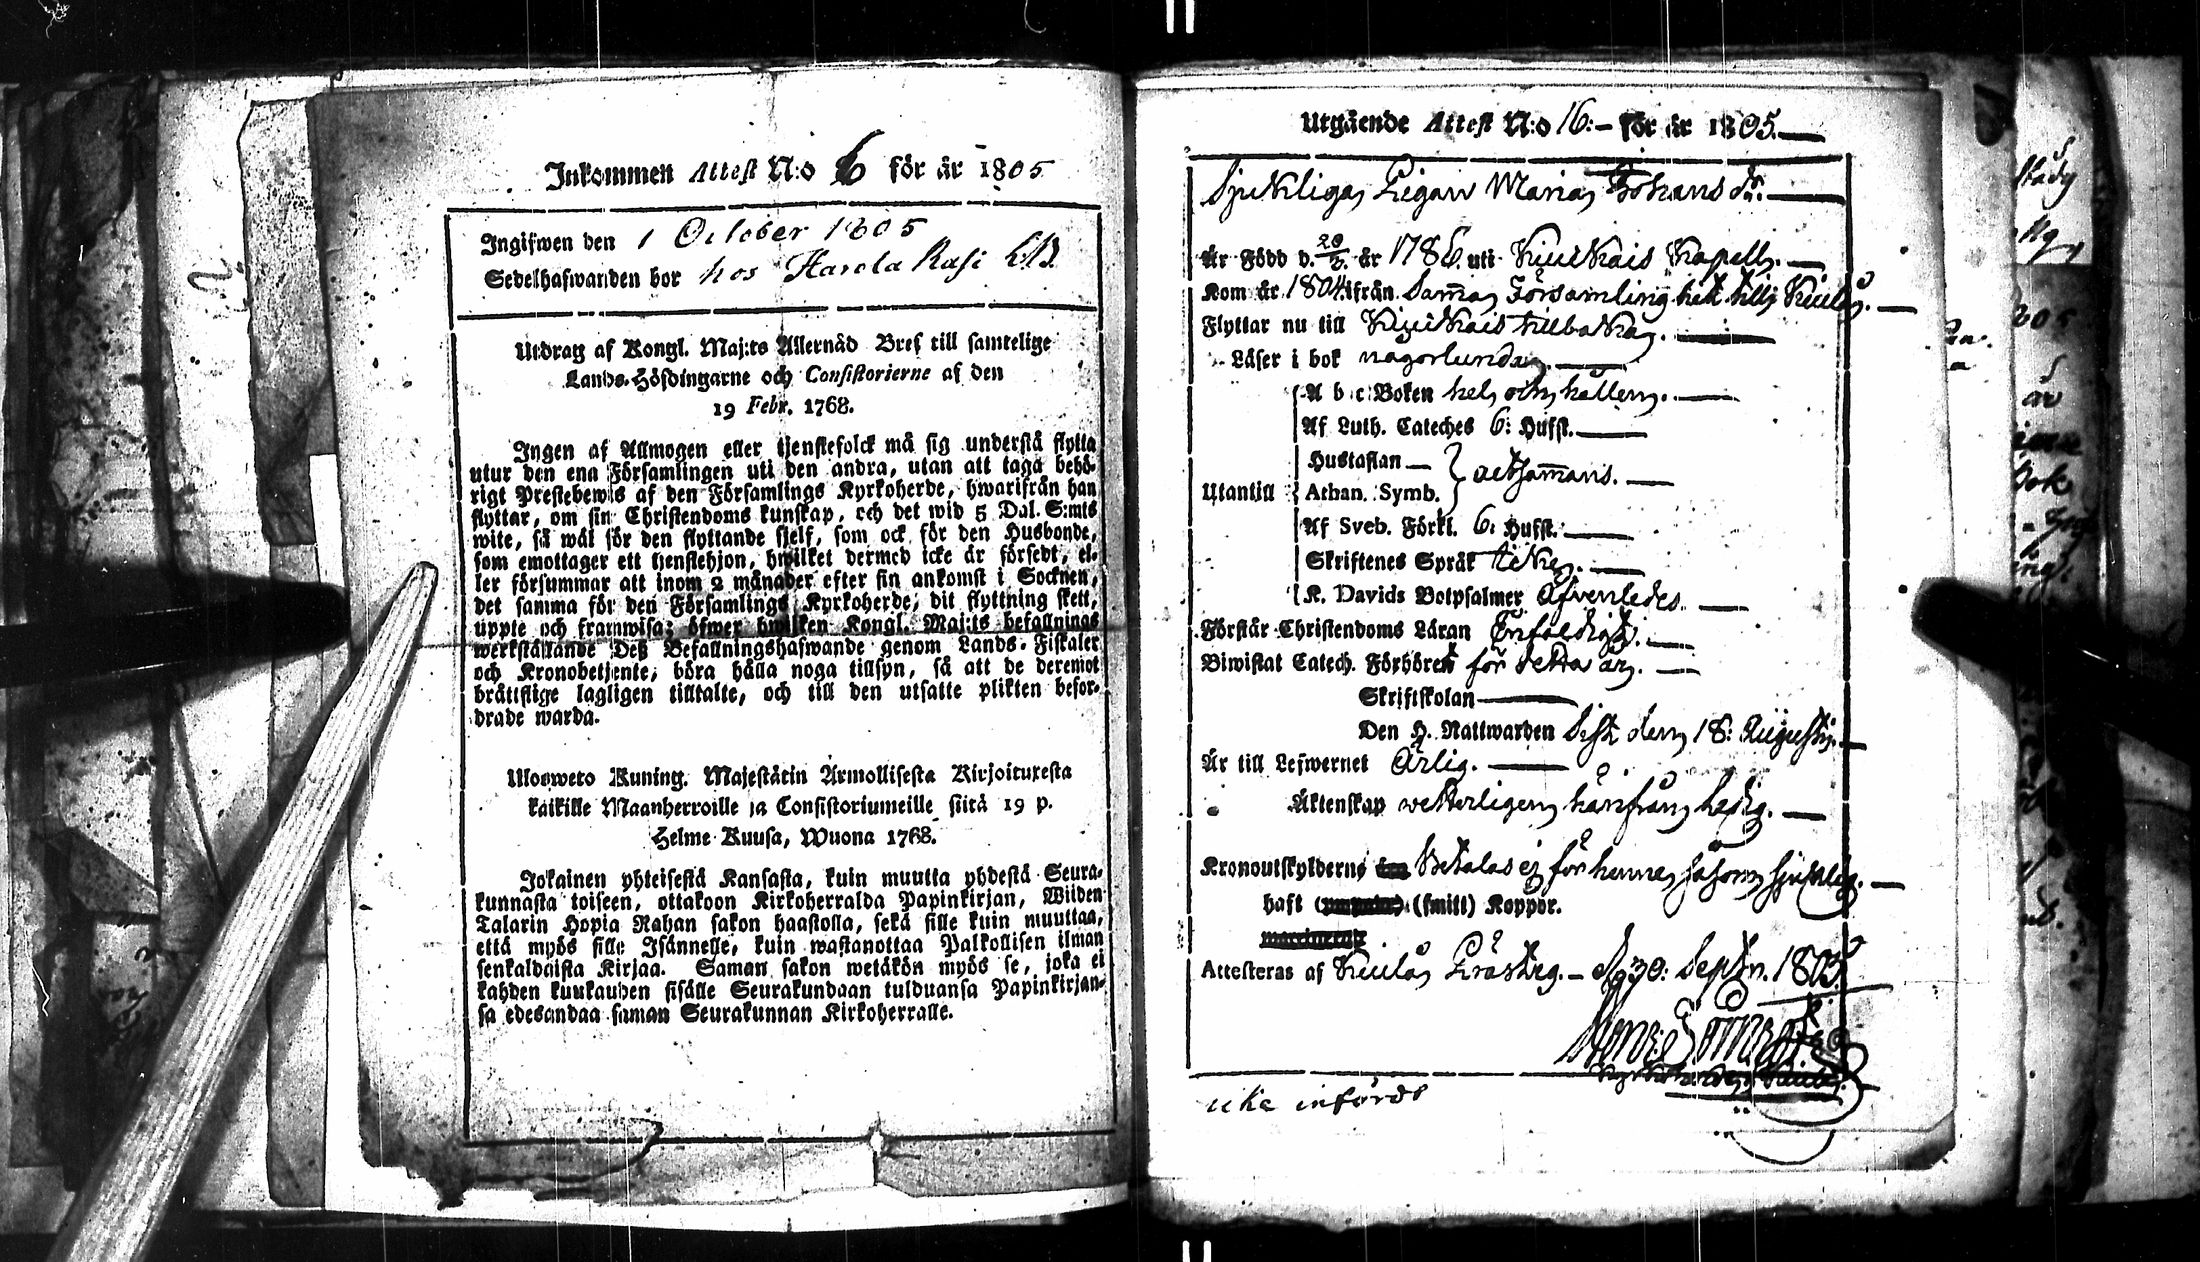 Inkommen Attest N:o 6 för år 1805
Ingifwen den 1 October 1805
Sedelhafwanden bor hos Harola Rasi
Utdrag af Kongl. Maj:ts Allernåd Bref till samtelige
Lands-Höfdingarne och Consistorierne af den
19 Febr. 1768.
Ingen af Allmogen eller tjenstefolck må sig understå flytta
utur den ena Församlingen uti den andra, utan att taga behö-
rigt Prestebewis af den Församlings Kyrkoherde, hwarifrån han
flyttar, om sin Christendoms kunskap, och det wid 5 Dal. S:mts
wite, så wäl för den flyttande sjelf, som ock för den Husbonde,
som emottager ett tjenstehjon, hwilket dermed icke är försedt, el-
ler försummar att inom 2 månader efter sin ankomst i Socknen,
det samma för den Församlings Kyrkoherde, dit flyttning skett,
uppte och framwisa; öfwer hwilken Kongl. Maj:ts befallnings
werkställande Deß Befallningshafwande genom Lands-Fiskaler
och Kronobetjente, böra hålla noga tillsyn, så att de deremot
bråttslige lagligen tilltalte, och till den utsatte plikten befor-
drade warda.
Ulosweto Kuning. Majestätin Armollisesta Kirjoituxesta
kaikille Maanherroille ja Consistoriumeille siitä 19 p.
Helme-Kuusa, Wuona 1768.
Jokainen yhteisestä Kansasta, kuin muutta yhdestä Seura-
kunnasta toiseen, ottakoon Kirkoherralda Papinkirjan, Wiiden
Talarin Hopia Rahan sakon haastolla, sekä sille kuin muuttaa,
että myös sille Isännelle, kuin wastanottaa Palkollisen ilman
senkaldaista Kirjaa. Saman sakon wetäkön myös se, joka ei
kahden kuukauden sisälle Seurakundaan tulduansa Papinkirjan-
sa edesandaa saman Seurakunnan Kirkoherralle.
Utgående Attest N:o 16:- för år 1805.
Sjukliga Pigan Maria Johans dr.
Är Född d. 20/3. år 1786. uti Kiukais Kapell.
Kom år 1804. ifrån Samma Församling hit till Kiulo.
Flyttar nu till Kiukais tillbaka.
Läser i bok någorlunda.
A b c Boken hel och hållen.
Af Luth. Cateches 6: Hufst.
Hustaflan
Athan. Symb. } allsammans.
Utantill
Af Sveb. Förkl. 6: Hufst.
Skriftenes Språk like.
K. Davids Botpsalmer Äfvenledes
Förstår Christendoms Läran Enfaldigt.
Biwistat Catech. Förhören för detta år.
Skriftskolan
Den H. Nattwarden Sist den 18: Augusti.
Är till Lefwernet Ärlig.
Äktenskap vetterligen härifrån ledig.
Kronoutskylderne Betalas ej för henne såsom sjuklig.
haft (smitt) Koppor.
Attesteras af Kiulo Prästeg. - d. 30: Septbr. 1805
icke införde